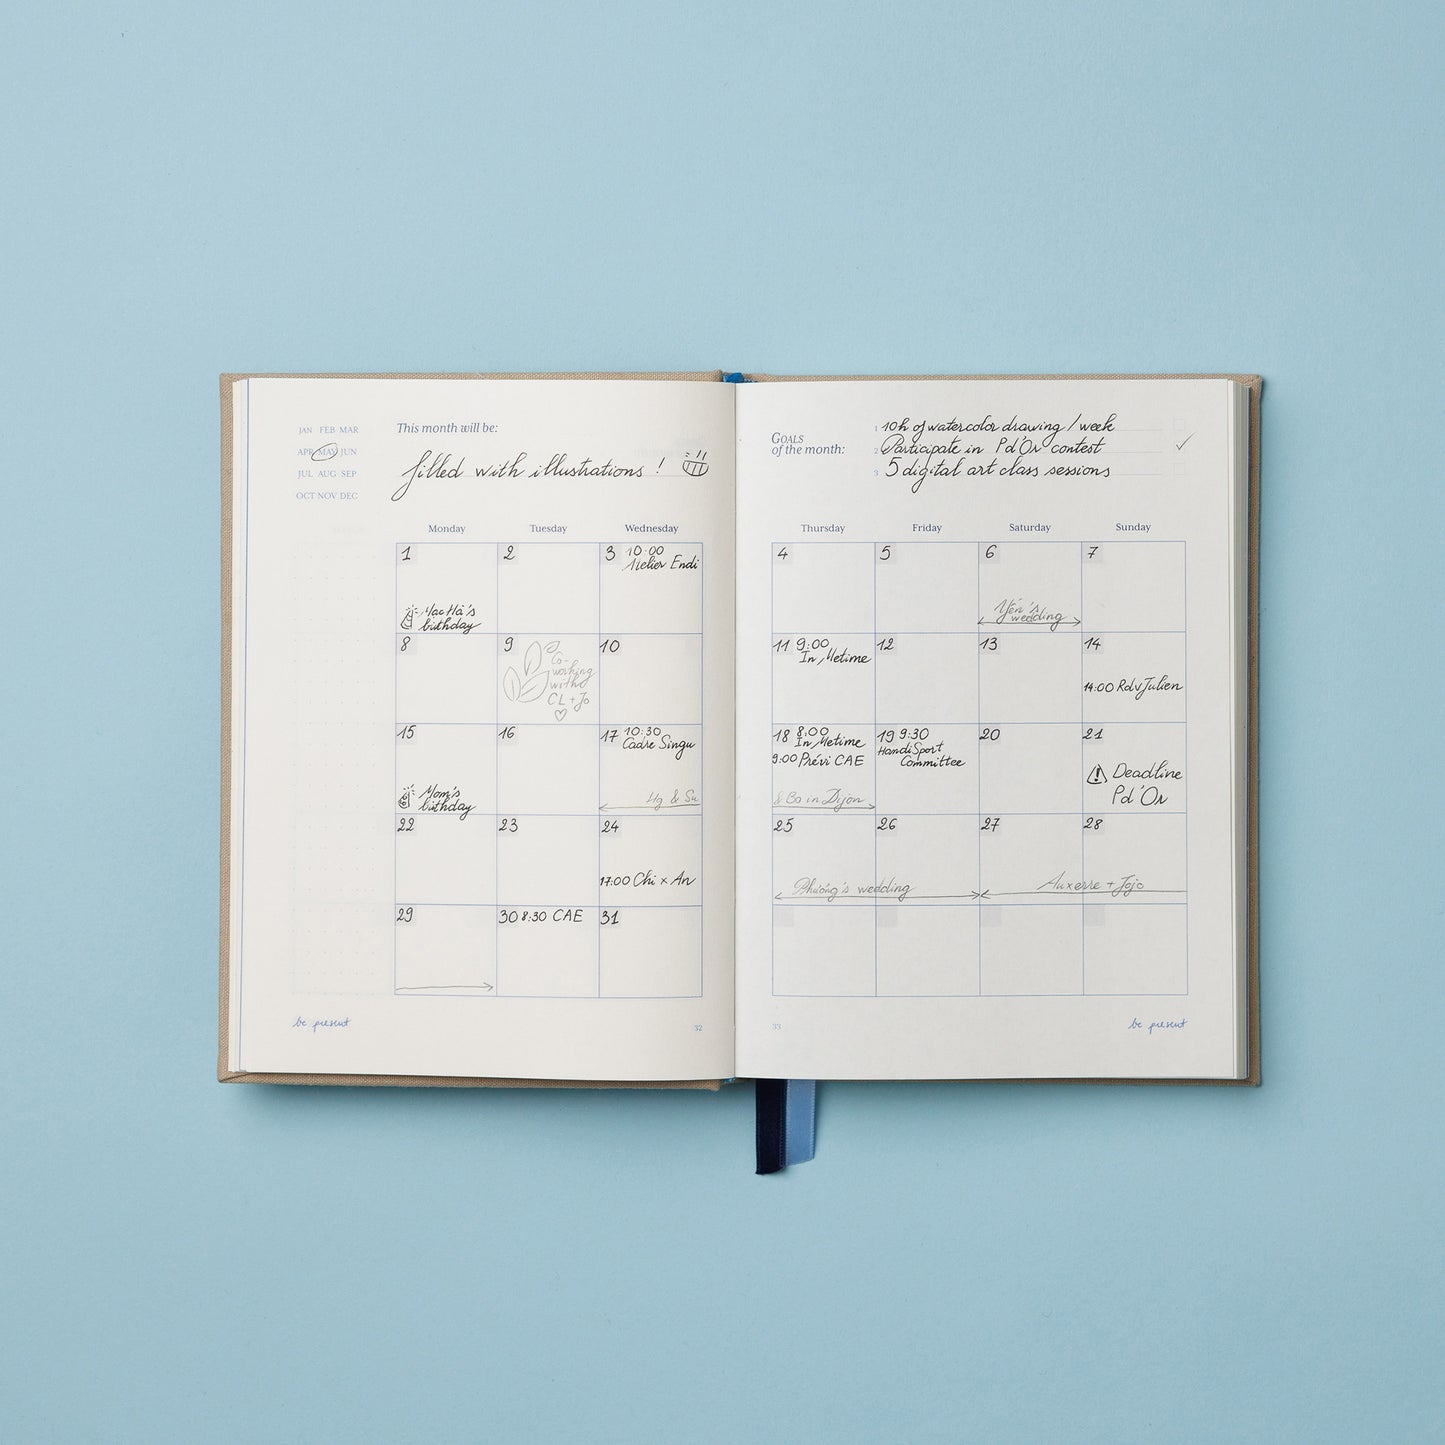 JAN FEB MAR
APR MAY JUN
JUL AUG SEP
OCT NOV DEC
This month will be:
filled with illustrations !
Monday Tuesday Wednesday
1
birthday
2
3 10:00
Atelier Endi
8
9
Co-
working
with
CL + Jo
10
15
Mom's
birthday
16
17 10:30
Cadre Singu
Hg & Su
22
23
24
17:00 Chi x An
29
30 8:30 CAE
31
be present
32
GOALS
of the month:
1 10h of watercolor drawing / week
2 Participate in Pd'Or contest
3 5 digital art class sessions
Thursday Friday Saturday Sunday
4
5
6
Yến's
wedding
7
11 9:00
In Metime
12
13
14
14:00 Rdv Julien
18 8:00
In Metime
9:00 Prévi CAE
& Bo in Dijon
19 9:30
HandiSport
Committee
20
21
Deadline
Pd'Or
25
26
Phương's wedding
27
28
Auxerre + Jojo
33
be present